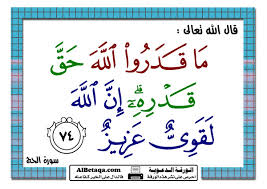 قال الله تعالى :
مَا قَدَرُوا۟ ٱللَّهَ حَقَّ
قَدْرِهِۦٓ ۗ إِنَّ ٱللَّهَ
لَقَوِىٌّ عَزِيزٌ ٧٤
سورة الحج
الورقة الدعوية
AlBetaqa.com